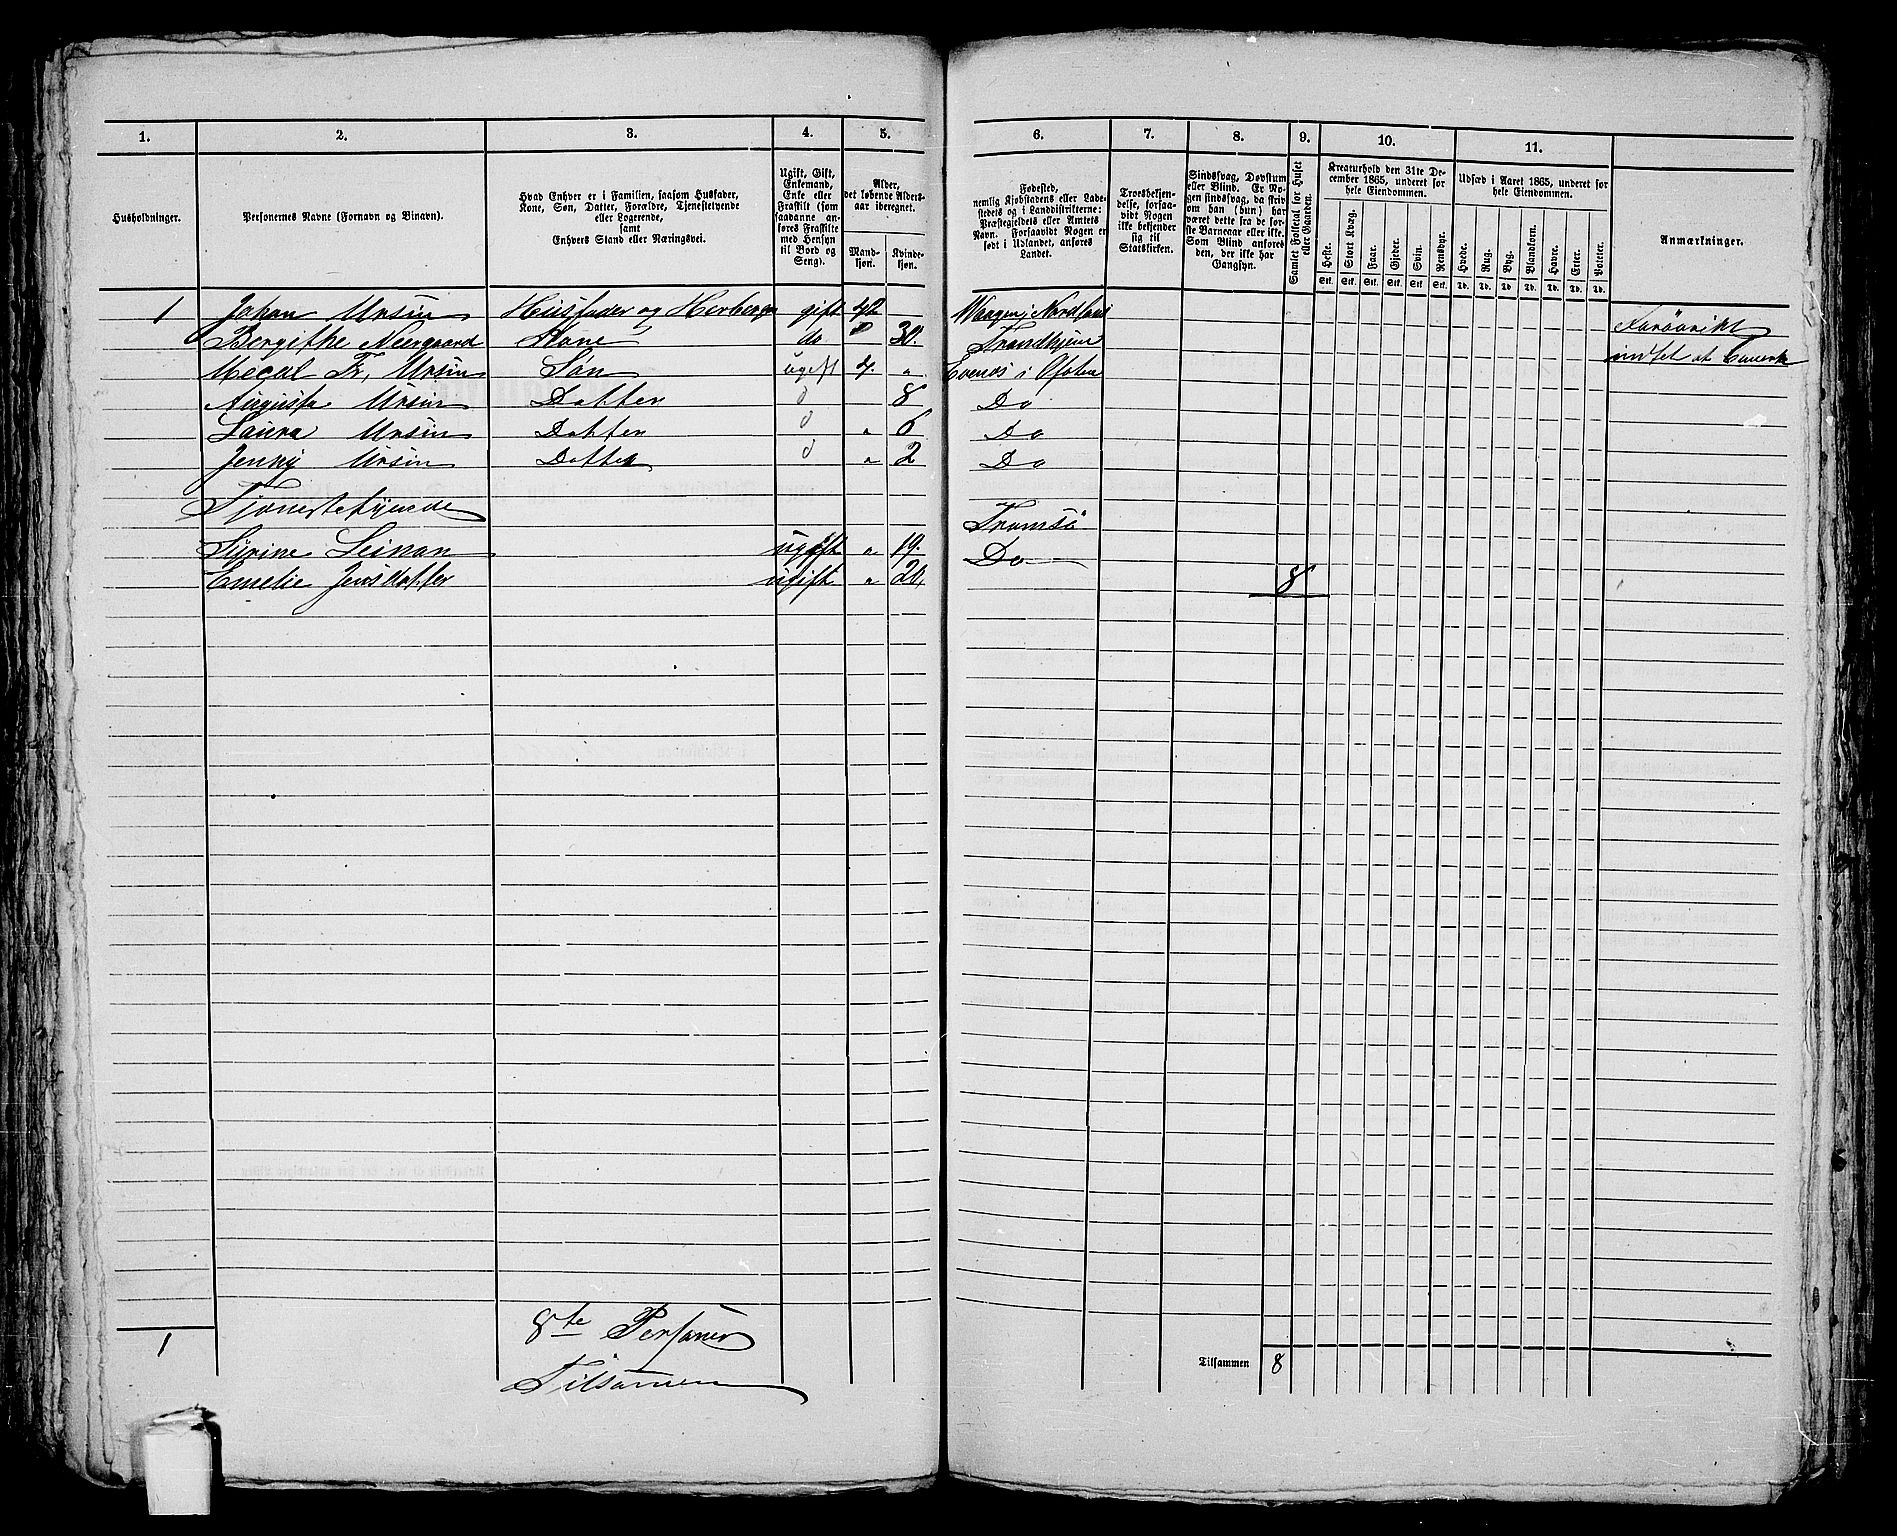 1. 2. 3. 4. 5. 6. 7. 8. 9. 10. 11.
Husholdninger.
Personernes Navne (Fornavn og Binavn).
Hvad Enhver er i Familien, saasom Husfader,
Kone, Søn, Datter, Forældre, Tjenestetyende
eller Logerende,
samt
Enhvers Stand eller Næringsvei.
Ugift, Gift,
Enkemand,
Enke eller
Fraskilt (som
saadanne an-
føres Fraskilte
med Hensyn
til Bord og
Seng).
Alder,
det løbende Alders-
aar iberegnet.
Mand-
kjøn.
Kvinde-
kjøn.
Fødested,
nemlig Kjøbstadens eller Lade-
stedets og i Landdistrikterne:
Præstegjeldets eller Amtets
Navn. Forsaavidt Nogen er
født i Udlandet, anføres
Landet.
Troesbekjen-
delse, forsaa-
vidt Nogen
ikke bekjender
sig til
Statskirken.
Sindssvag, Døvstum
eller Blind. Er No-
gen sindssvag, da skriv
om han (hun) har
været dette fra de før-
ste Barneaar eller ikke.
Som Blind anføres
den, der ikke har
Gangsyn.
Samlet Folketal for Huset
eller Gaarden.
Kreaturhold den 31te De-
cember 1865, anført for
hele Eiendommen.
Heste. Stort Kvæg. Faar. Gjeder. Svin. Rensdyr.
Stk. Stk. Stk. Stk. Stk. Stk.
Udsæd i Aaret 1865, anført for
hele Eiendommen.
Hvede. Rug. Byg. Blandkorn. Havre. Erter. Poteter.
Td. Td. Td. Td. Td. Td. Td.
Anmærkninger.
1 Johan Ursin Husfader og gift 42 Waagen i Nordland
Bergithe Neergaard Kone do 30. Trondhjem
Ursin Søn ugift Evenæs i Ofoten
Augusta Ursin Datter d 8 Do
Laura Ursin Datter d " 6 Do
Jenny Ursin Datter d " 2 Do
Tjenestetyende
Tromsö
ugift " 19. Do
Emelie Jensdatter ugift "
8
8te Personer
Tilsamen
1
Tilsammen 8